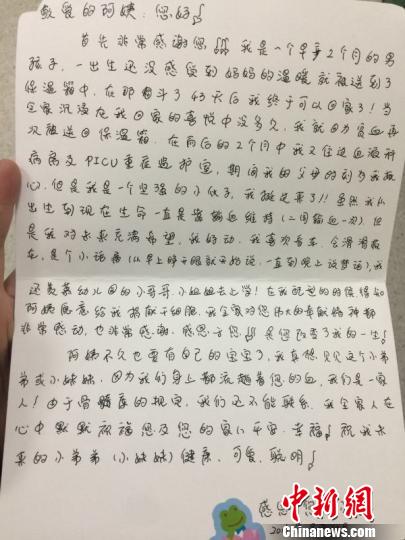 敬爱的阿姨：您好！
首先非常感谢您！！！我是一个早产2个月的男
孩子，一出生还没感受到妈妈的温暖就被送到了
保温箱中，在那奋斗了43天后我终于可以回家了！当
全家沉浸在我回家的喜悦中没多久，我就因为贫血再
次被送回保温箱。在前后的2个月中我又住过血液科
病房及PICU重症监护室，期间我的父母的
心。但是我是一个坚强的小伙子，我挺过来了！！虽然我从
出生到现在生命一直是靠输血维持（二周输血一次）但
是我对未来充满希望，我好动，我喜欢音乐，会滑滑板
车，是个小话痨（从早上睁开眼就开始说，一直到晚上说梦话），我
还羡慕幼儿园的小哥哥小姐姐去上学！在我配型的时候得知
阿姨愿意给我捐献干细胞，我全家对您伟大的奉献精神都
非常感动，也非常感谢，感恩于您！！！是您改变了我的一生！
阿姨不久也要有自己的宝宝了，我真想见见这个小弟
弟或小妹妹，因为我们身上都流趟着您的血，我们是一家
人！由于骨髓库的规定，我们还不能联系，我全家人在
心中默默祝福您及您的家人平安、幸福！祝我未
来的小弟弟（小妹妹）健康、可爱、聪明！
感恩您
中新网
Chinanews.com